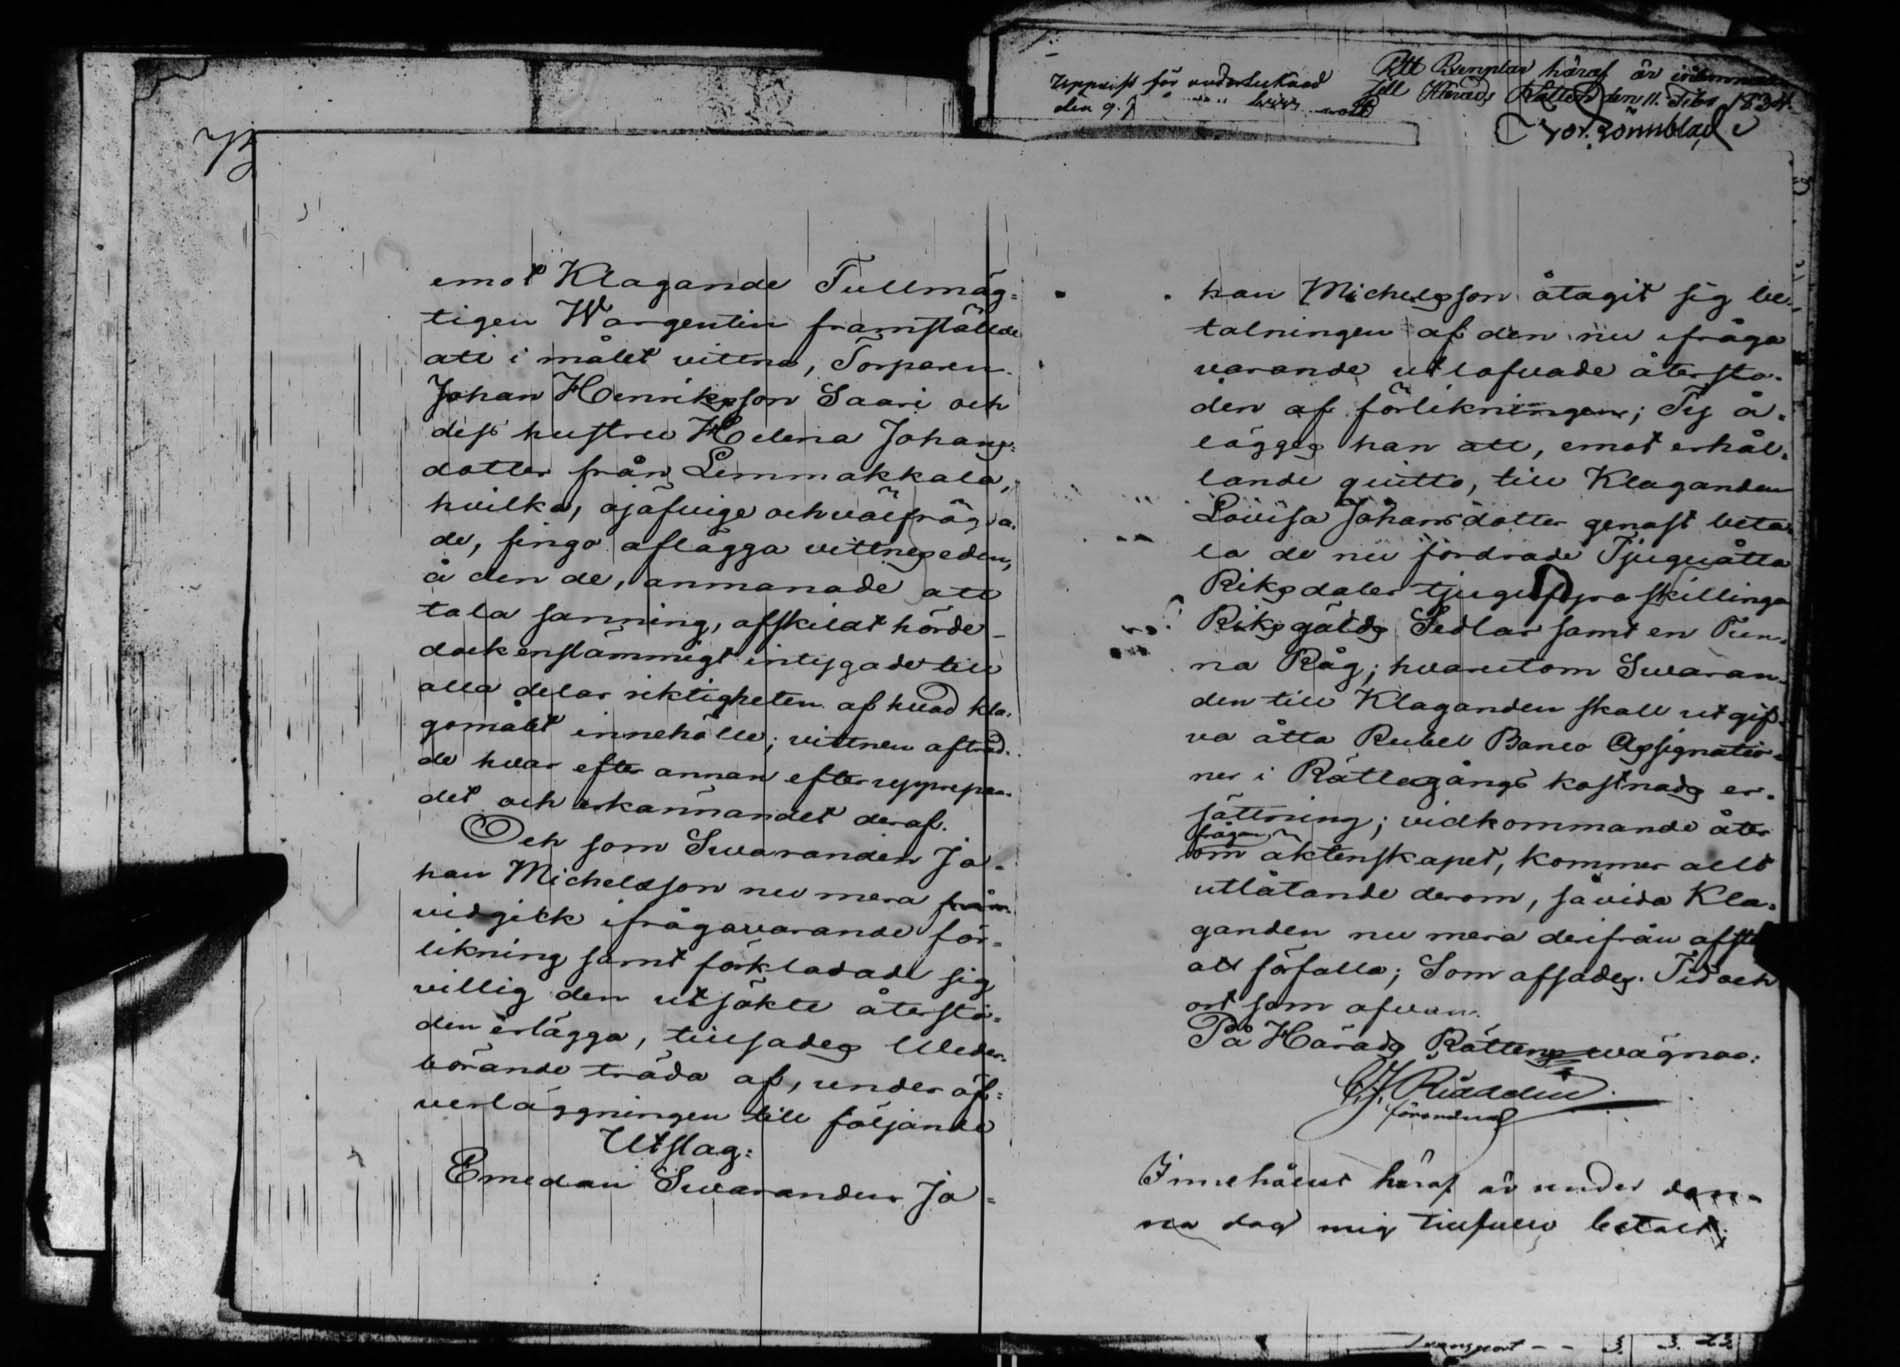 emot Klagande Fullmäg=
tigen Wargentin framställde
att i målet vittna, Torparen
Johan Henriksson Saari och
dess hustru Helena Johans=
dotter från Lemmakkala,
hvilka, ojäfvige och välfräg-
de, fingo aflägga vittnes eden,
å den de, anmanade att
tala sanning, afskildt hörde
dock enstämmigt intygade till
alla delar riktigheten af hvad kla-
gomålet innehölle; vittnen afträd-
de hvar efter annan efter uppropan-
det och erkännandet deraf.
Och som Swaranden Jo-
han Michelsson nu mera
vidgick ifrågavarande för-
likning samt förklarade sig
villig den utsökte återsto-
den erlägga, tillsades Weder-
börande träda af, under öf=
verläggningen till följande
Utslag:
Emedan Swaranden Jo=
Ett Exemplar häraf är
till Härads Rätten den 11. Febr 1834.
han Michelsson åtagit sig be-
talningen af den nu ifråga
varande utlofvade återsto-
den af förlikningen; Ty å-
lägges han att, emot erhål-
lande quitto, till Klaganden
Lovisa Johansdotter genast beta-
la de nu fordrade Tjuguåtta
Riksdaler tjugufyra skillingar
Riksgälds Sedlar samt en Tun-
na Råg; hvarutom Swaran-
den till Klaganden skall utgif-
va åtta Rubel Banco Assignatio-
ner i Rättegångs kostnads er-
sättning; vidkommande åter
frågan
om äktenskapet, kommer allt
utlåtande derom, såvida Kla-
ganden nu mera derifrån afstå
att förfalla; Som afsades. Tid och
ort som ofvan.
På Härads Rättens wägnar:
förordnad
Innehållet häraf är under den-
na dag mig tillfullo betalt;
Transport - - 3. 3. 23